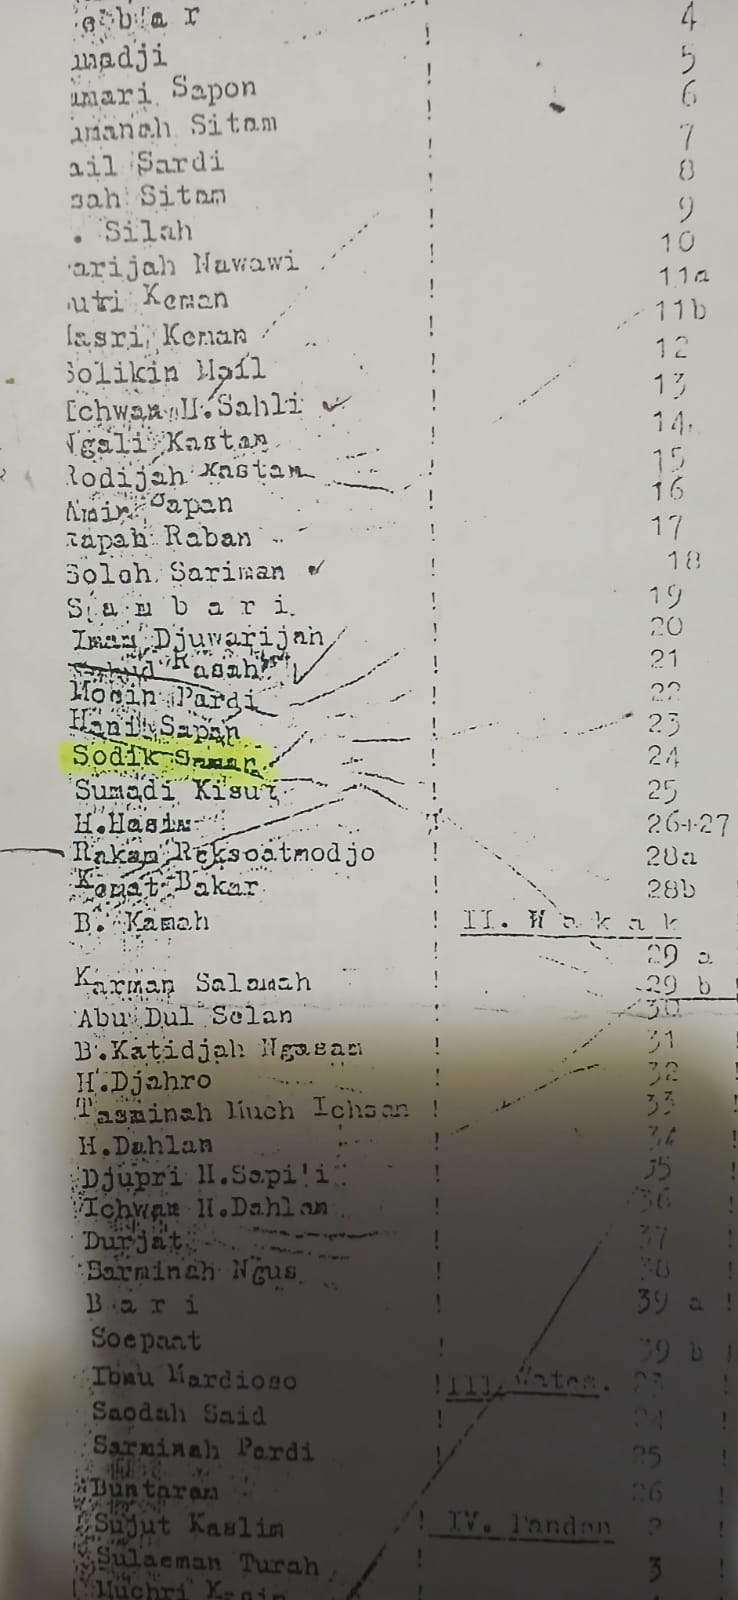 ebar ! 4
madji ! 5
mari Sapon ! 6
manah Sitam ! 7
ail Sardi ! 8
sah Sitam ! 9
. Silah ! 10
arijah Nawawi ! 11a
utri Keman ! 11b
asri Keman ! 12
Solikin Mail ! 13
Ichwan H.Sahli ! 14.
Ngali Kastam ! 15
Rodijah Kastam ! 16
Amir Sapan ! 17
Rapah Raban ! 18
Soleh Sariman ! 19
S a m b a r i ! 20
Iman Djuwarijah ! 21
Kasah ! 22
Mosin Pardi ! 23
Hani Sapan ! 24
Sodik ! 25
Sumadi Kisut ! 26+27
H.Hasim ! 28a
Rakan Reksoatmodjo ! 28b
Kemat Bakar
B. Kamah ! II. W a k a k
29 a
Karman Salamah ! 29 b
Abu Dul Selan 30
B.Katidjah Ngasam ! 31
H.Djahro ! 32
Tasminah Much Ichsan ! 33
H.Dahlan ! 34
Djupri H.Sapi'i ! 35
Ichwan H.Dahlan ! 36
Durjat ! 37
Sarminah Ngus ! 38
B a r i ! 39 a !
Soepaat ! 39 b !
Ibnu Mardioso ! III. Wates. 23
Saodah Said ! 24 !
Sarminah Pardi ! 25
Buntaran 26 !
Sujut Kaslim ! IV. Pandan 2 !
Sulaeman Turah ! 3 !
Muchri Kasim